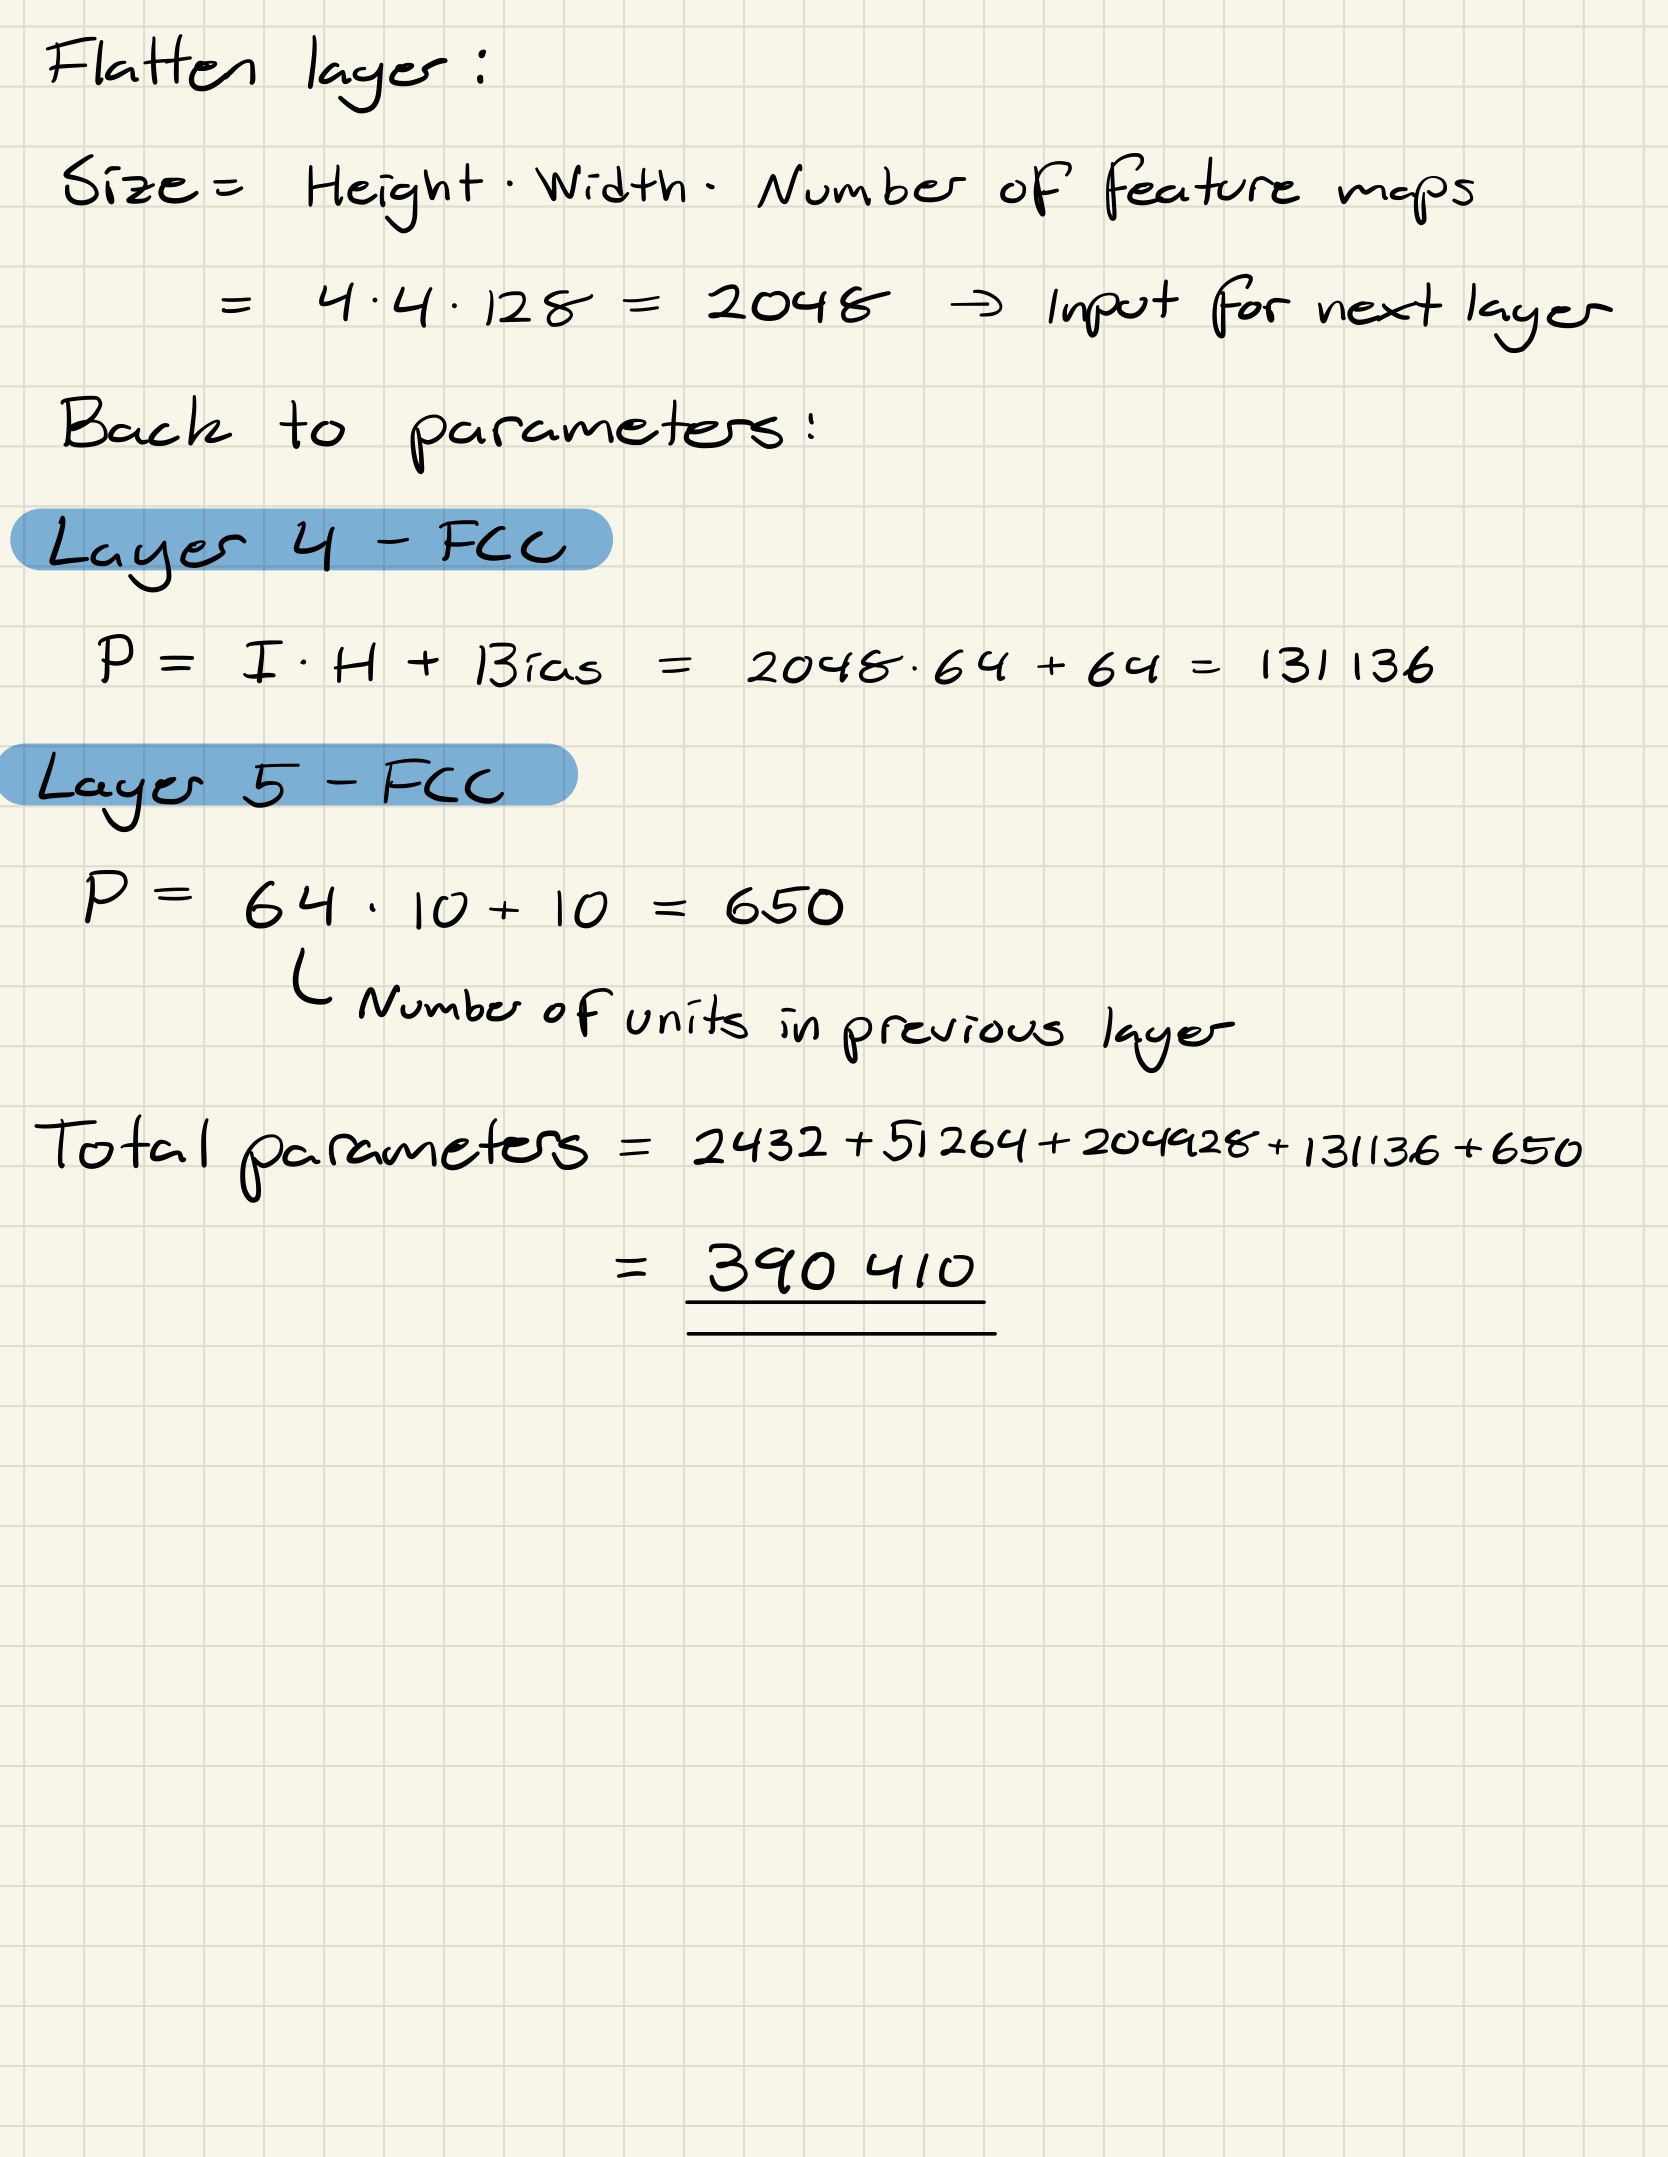 Flatten layer:
Size = Height · Width · Number of feature maps
= 4 · 4 · 128 = 2048 → Input for next layer
Back to parameters:
Layer 4 - FCC
P = I · H + Bias = 2048 · 64 + 64 = 131 136
Layer 5 - FCC
P = 64 · 10 + 10 = 650
Number of units in previous layer
Total parameters = 2432 + 51264 + 204928 + 131136 + 650
= 390 410